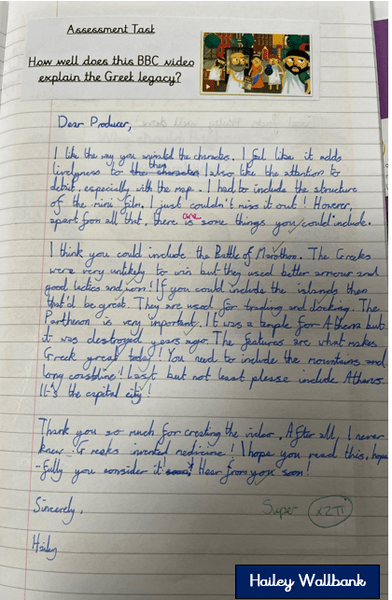 Assessment Task
How well does this BBC video
explain the Greek legacy?
Dear Producer,
I like the way you animated the characters. I feel like it adds
livelyness to the characters them I also like the attention to
detail, especially with the map. I had to include the structure
of the mini film. I just couldn't miss it out! However,
apart from all that, there is are some things you could include.
I think you could include the Battle of Marathon. The Greeks
were very unlikely to win but they used better armour and
good tactics and won! If you could include the islands then
that'd be great. They are used for trading and docking. The
Parthenon is very important. It was a temple for Athena but
it was destroyed years ago. The features are what makes
Greek great today! You need to include the mountains and
long coastline! Last but not least please include Athens.
It's the capital city!
Thank you so much for creating the video. After all, I never
knew Greeks invented medicine! I hope you read this, hope
-fully you consider it! Hear from you soon!
Sincerely,
Super x2TP
Hailey
Hailey Wallbank